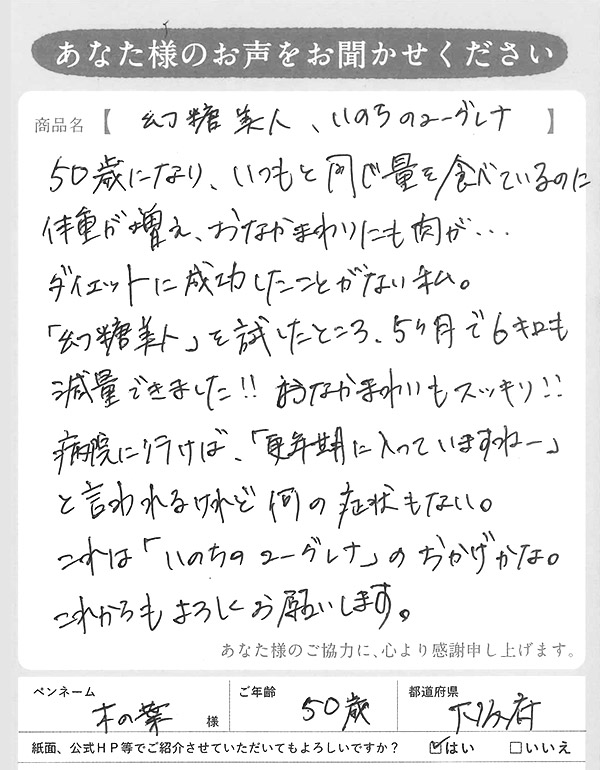 あなた様のお声をお聞かせください
商品名【 幻糖美人、いのちのユーグレナ 】
50歳になり、いつもと同じ量を食べているのに
体重が増え、おなかまわりにも肉が・・・
ダイエットに成功したことがない私。
「幻糖美人」を試したところ、5ヶ月で6キロも
減量できました!! おなかまわりもスッキリ!!
病院に行けば、「更年期に入っていますねー」
と言われるけれど何の症状もない。
これは「いのちのユーグレナ」のおかげかな。
これからもよろしくお願いします。
あなた様のご協力に、心より感謝申し上げます。
ペンネーム 木の葉 様 ご年齢 50歳 都道府県 大阪府
紙面、公式HP等でご紹介させていただいてもよろしいですか? ☑はい □いいえ